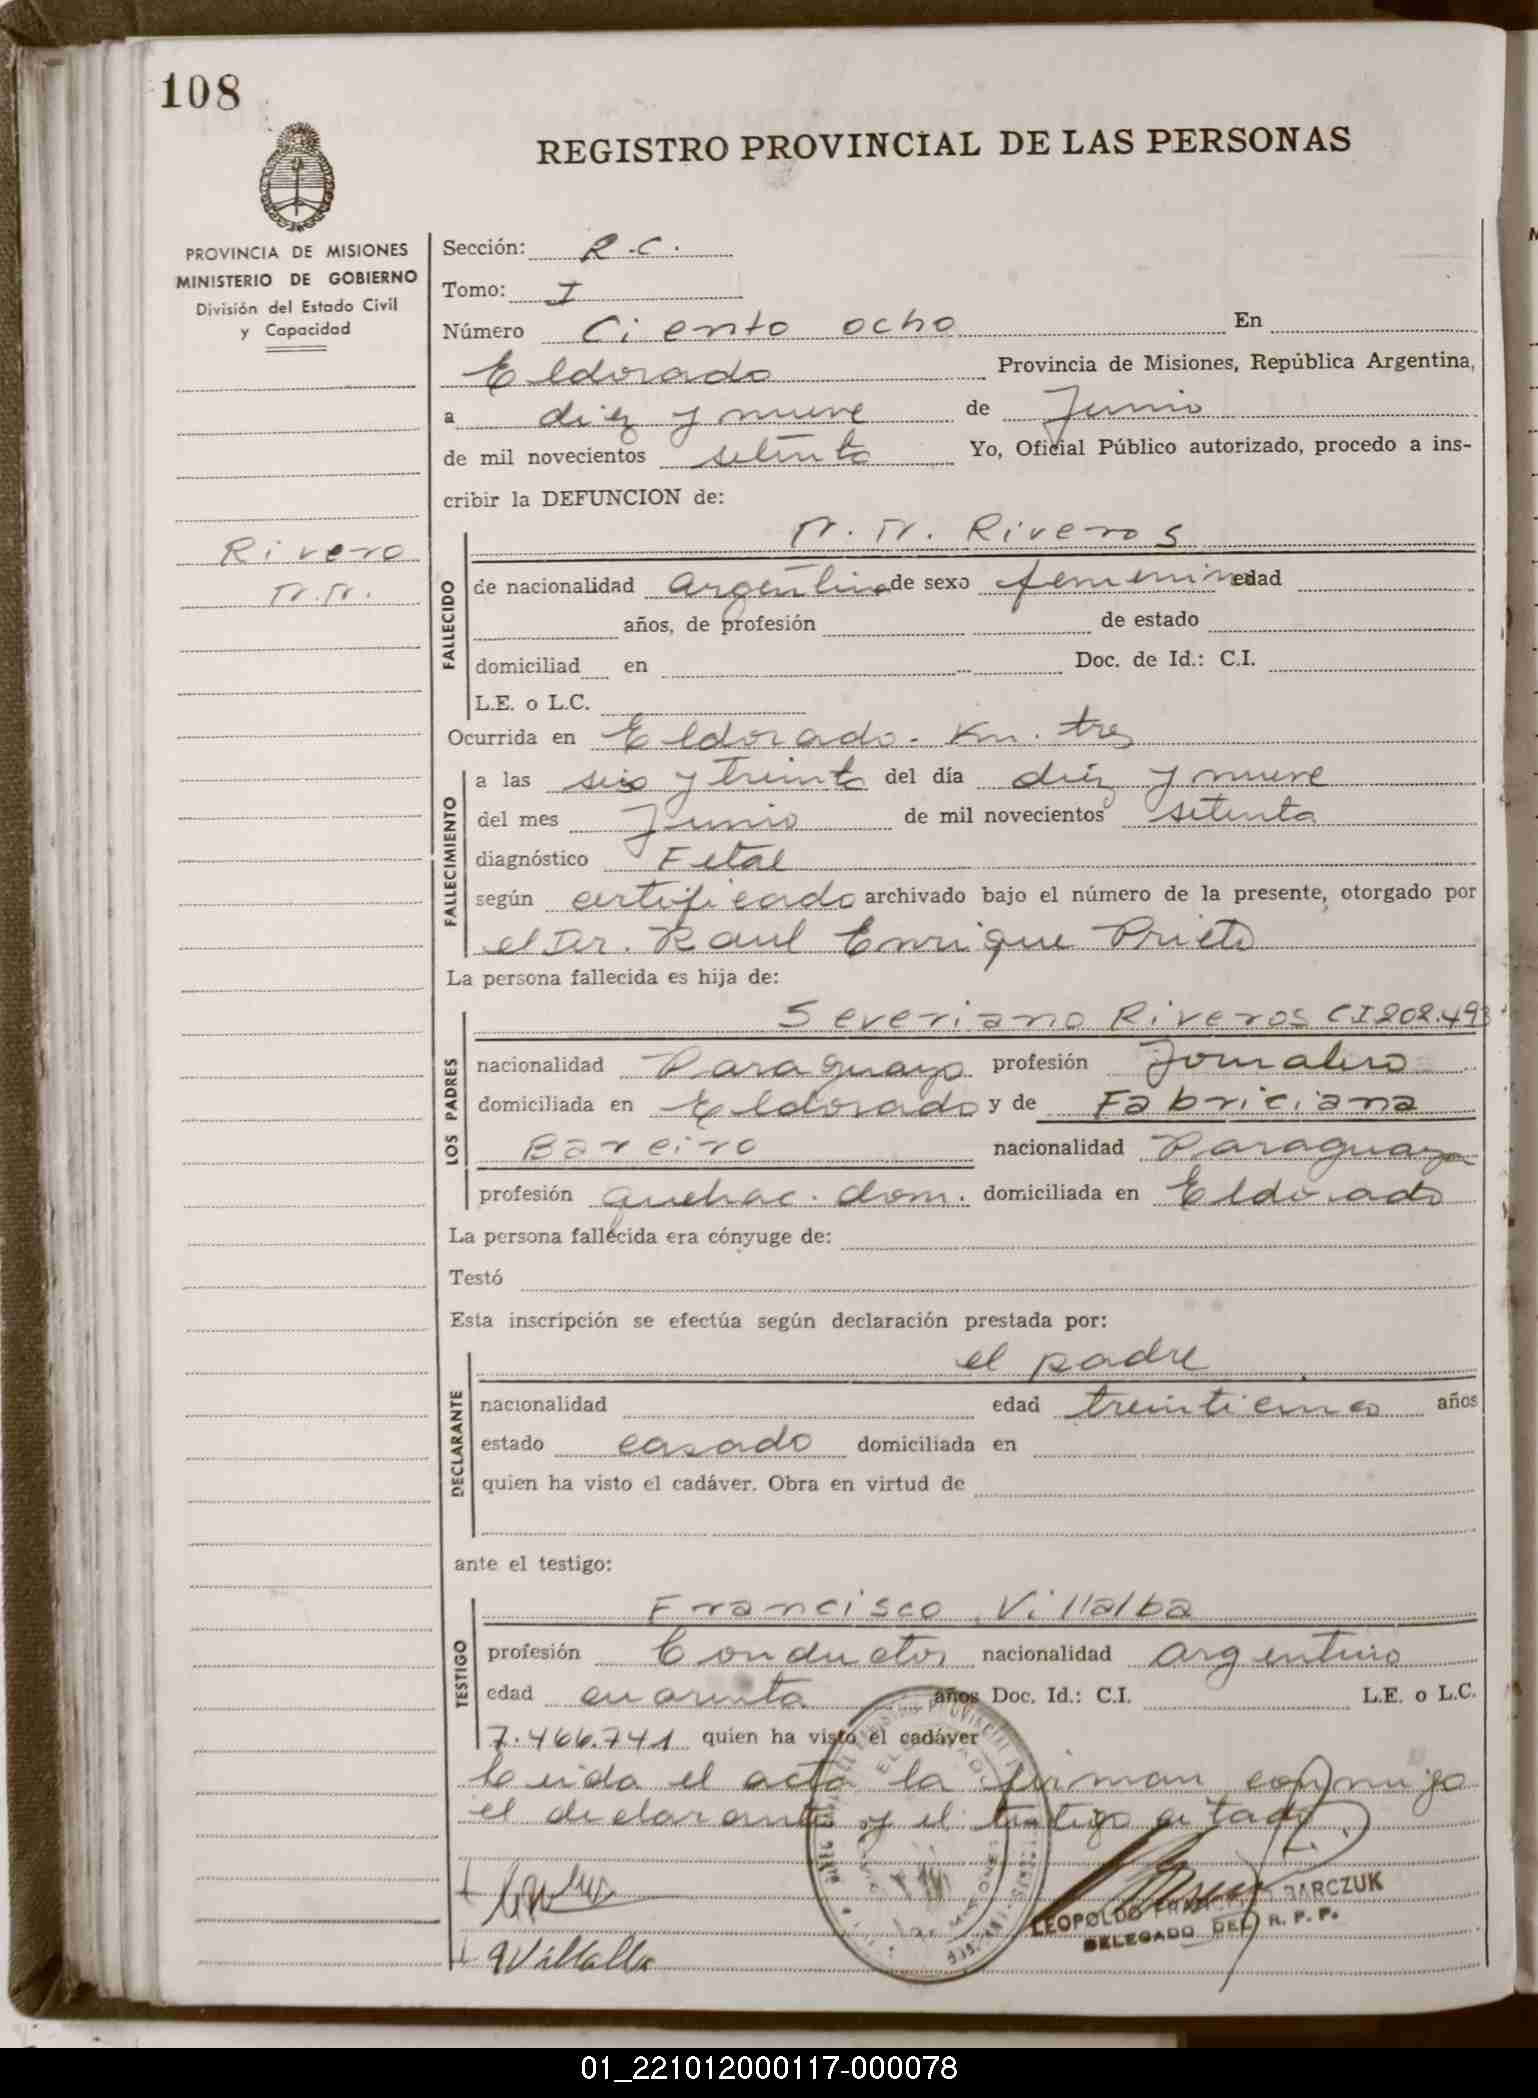 108
REGISTRO PROVINCIAL DE LAS PERSONAS
PROVINCIA DE MISIONES
MINISTERIO DE GOBIERNO
División del Estado Civil
y Capacidad
Rivero
N.N.
Sección: R.C.
Tomo: I
Número Ciento ocho En
Eldorado Provincia de Misiones, República Argentina,
a diez y nueve de Junio
de mil novecientos setenta Yo, Oficial Público autorizado, procedo a ins-
cribir la DEFUNCION de:
FALLECIDO
N.N. Riveros
de nacionalidad argentina de sexo femenino edad
años, de profesión de estado
domiciliad en Doc. de Id.: C.I.
L.E. o L.C.
Ocurrida en Eldorado - Km. tres
FALLECIMIENTO
a las seis y treinta del día diez y nueve
del mes Junio de mil novecientos setenta
diagnóstico Fetal
según certificado archivado bajo el número de la presente, otorgado por
el Dr. Raul Enrique Prieto
La persona fallecida es hija de:
LOS PADRES
Severiano Riveros CI 202.493
nacionalidad Paraguayo profesión Jornalero
domiciliada en Eldorado y de Fabriciana
Bareiro nacionalidad Paraguaya
profesión quehac. dom. domiciliada en Eldorado
La persona fallecida era cónyuge de:
Testó
Esta inscripción se efectúa según declaración prestada por:
DECLARANTE
el padre
nacionalidad edad treinticinco años
estado casado domiciliada en
quien ha visto el cadáver. Obra en virtud de
ante el testigo:
TESTIGO
Francisco Villalba
profesión Conductor nacionalidad argentino
edad cuarenta años Doc. Id.: C.I. L.E. o L.C.
7.466.741 quien ha visto el cadáver
Leida el acta la firman conmigo
el declarante y el testigo citado
LEOPOLDO BARCZUK
DELEGADO DEL R. P. P.
Villalba
01_221012000117-000078